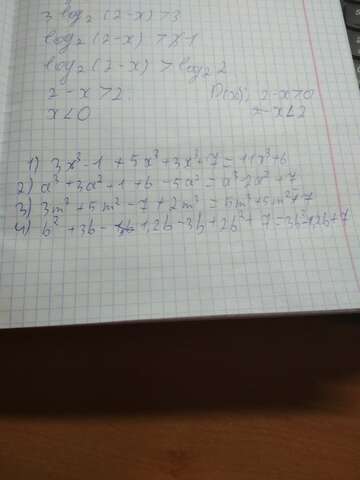 3 log₂(2-x) > 3
log₂(2-x) > 1
log₂(2-x) > log₂2
2-x > 2 D(x): 2-x>0
x<0 x<2
1) 3x³-1+5x³+3x³+7=11x³+6
2) a³+3a²+1+6-5a²=a³-2a²+7
3) 3m³+5m²-7+2m³=5m³+5m²-7
4) b²+3b- 12b-3b+2b²+7=3b²-12b+7